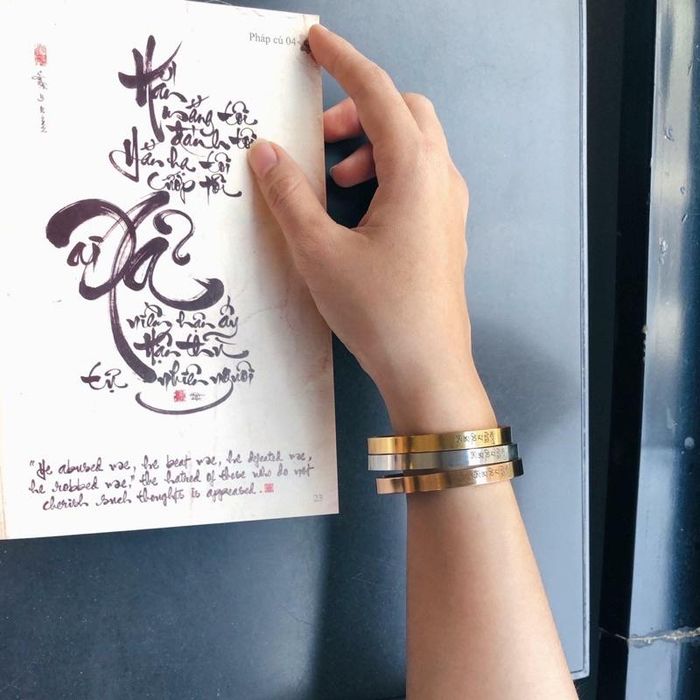 Pháp cú 04-
Hắn
mắng tôi
đánh tôi
Hắn hạ tôi
cướp tôi
Ai Xả
niềm hận ấy
Hận thù
tự nhiên nguôi
"He abused me, he beat me, he defeated me,
he robbed me," the hatred of those who do not
cherish such thoughts is appeased.
23